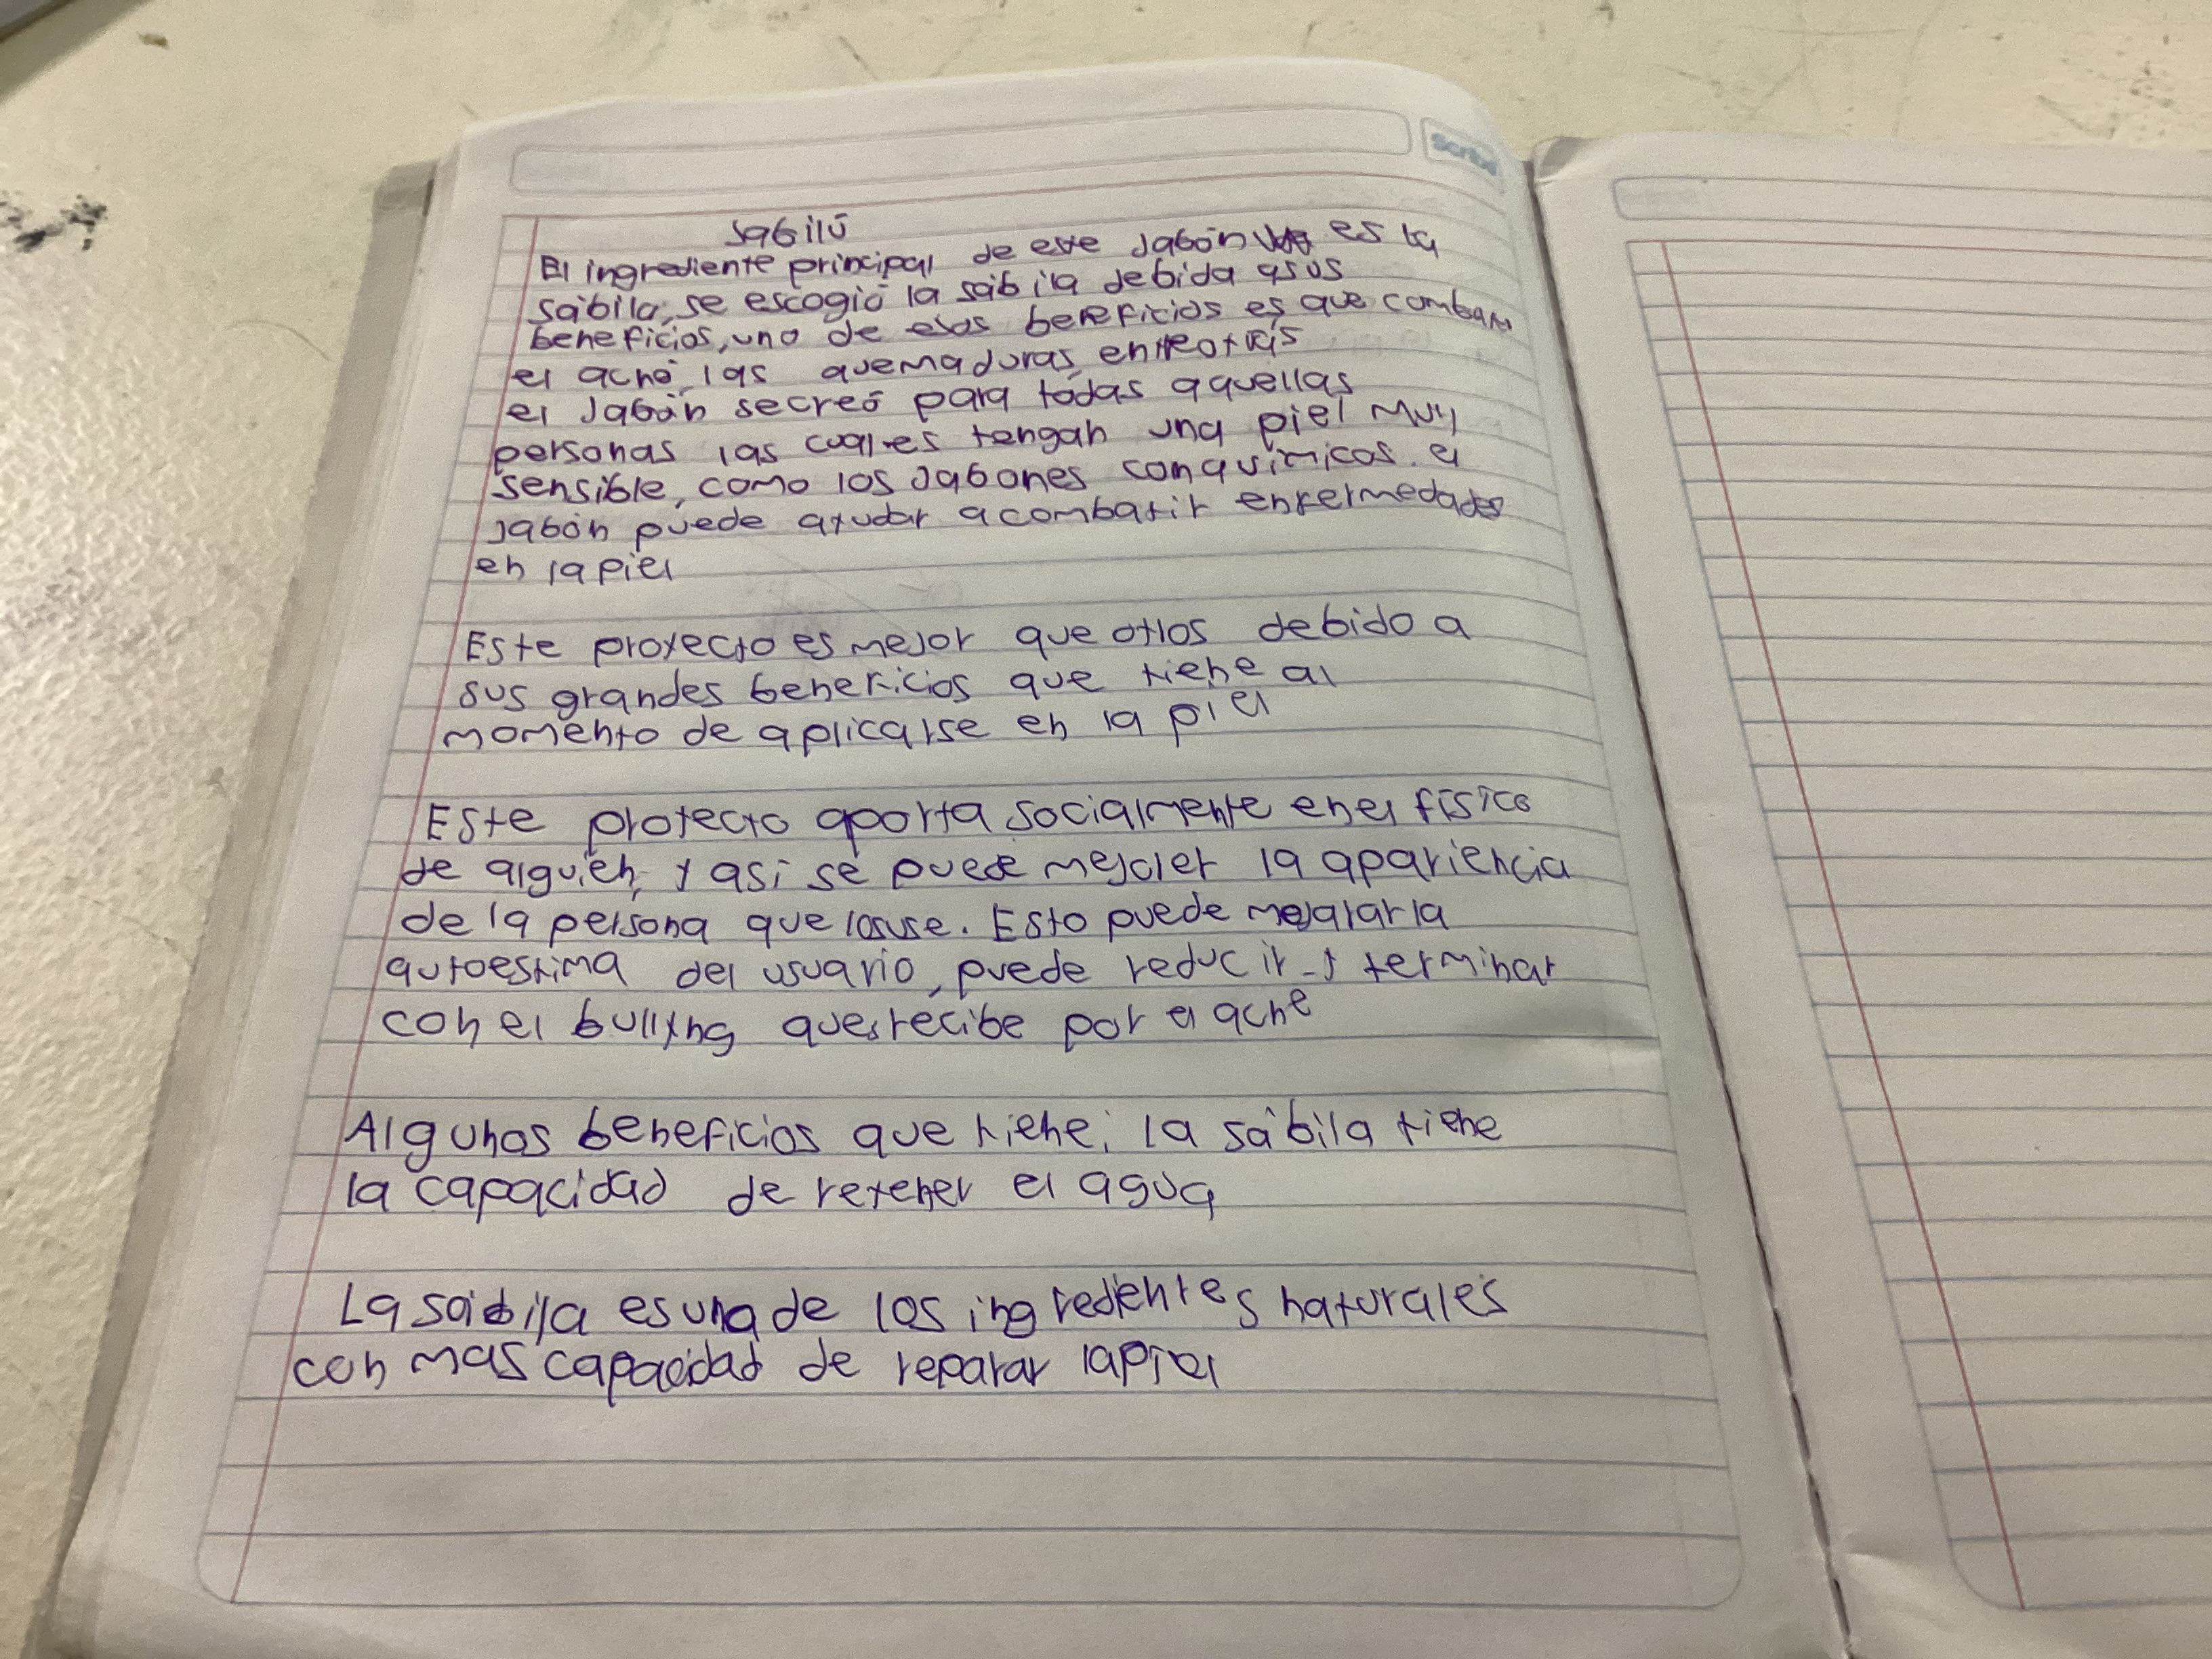 Scribe
Jabilú
El ingrediente principal de este Jabón es la
sábila, se escogió la sábila debida a sus
beneficios, uno de esos beneficios es que combate
el acné, las quemaduras, entre otras
el Jabón se creó para todas aquellas
personas las cuales tengan una piel muy
sensible, como los Jabones con químicos. el
Jabón puede ayudar a combatir enfermedades
en la piel
Este proyecto es mejor que otros debido a
sus grandes beneficios que tiene al
momento de aplicarse en la piel
Este proyecto aporta socialmente en el físico
de alguien, y así se puede la apariencia
de la persona que lo use. Esto puede la
autoestima del usuario, puede reducir y terminar
con el bullyng que recibe por el acne
Algunos beneficios que tiene: la sábila tiene
la capacidad de retener el agua
La sábila es una de los ingredientes naturales
con mas capacidad de reparar la piel